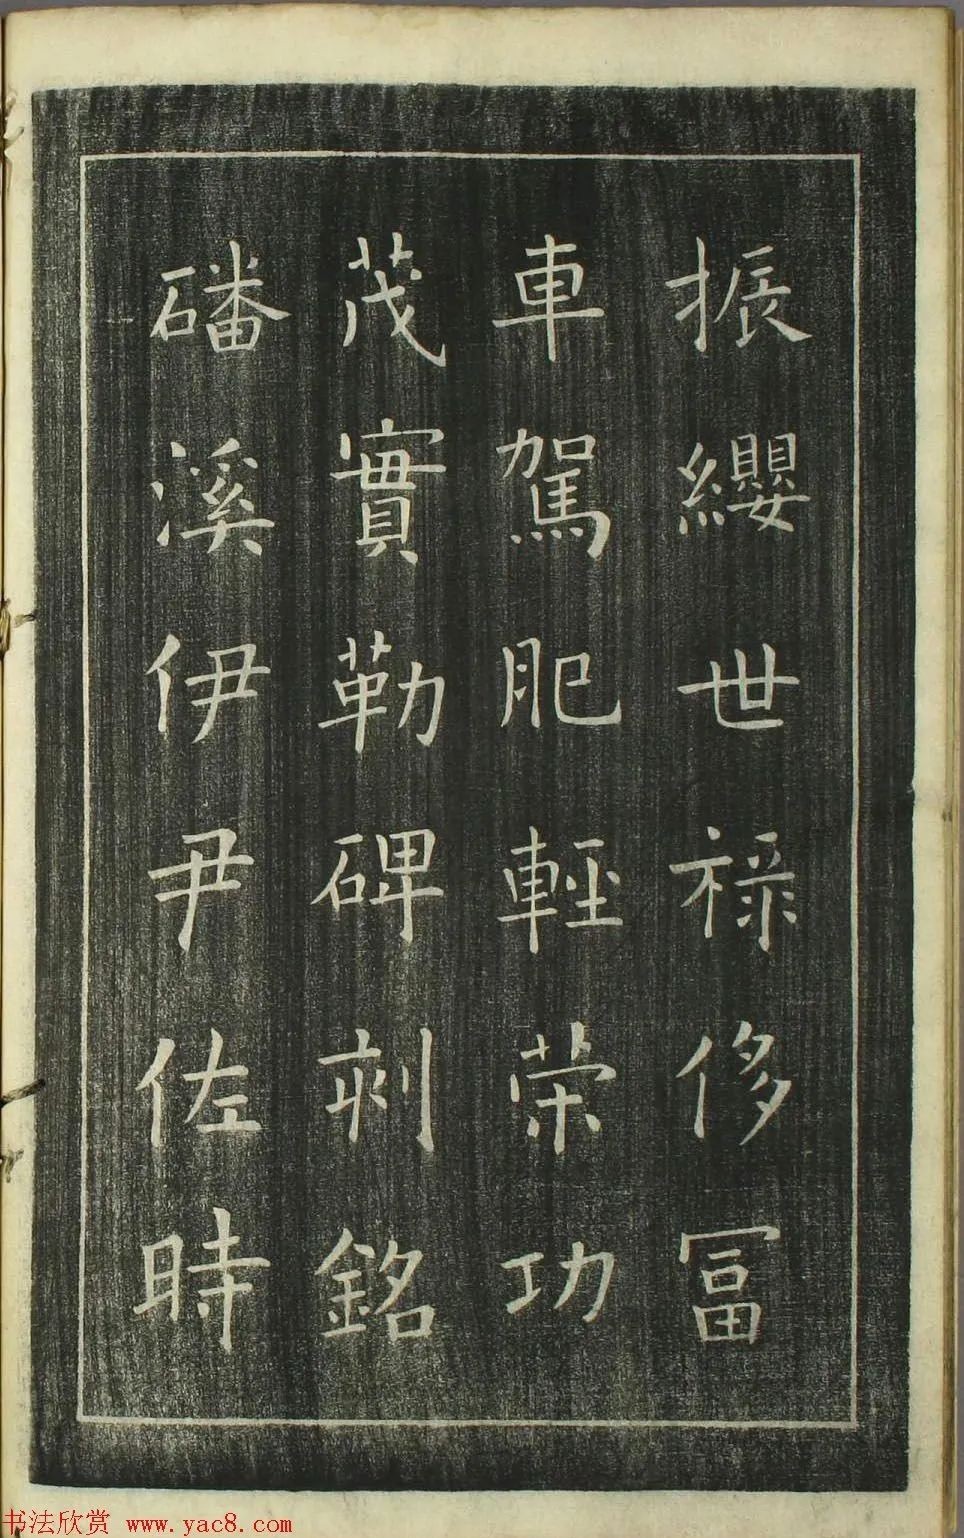 振纓世祿侈冨
車駕肥輕荣功
茂實勒碑刺銘
磻溪伊尹佐時
书法欣赏 www.yac8.com